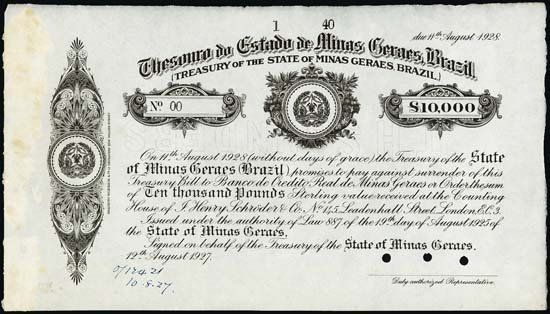 1 40
due 11th August 1928.
Thesouro do Estado de Minas Geraes, Brazil.
(TREASURY OF THE STATE OF MINAS GERAES, BRAZIL.)
No 00
£10,000
On 11th August 1928 (without days of grace), the Treasury of the State
of Minas Geraes (Brazil) promises to pay against surrender of this
Treasury Bill to Banco de Credito Real de Minas Geraes or Order the sum
of Ten thousand Pounds Sterling value received at the Counting
House of J. Henry Schröder & Co. No 145 Leadenhall Street, London, E.C. 3.
Issued under the authority of Law 887 of the 19th day of August 1925 of
the State of Minas Geraes.
Signed on behalf of the Treasury of the State of Minas Geraes.
12th August 1927.
10.8.27.
Duly authorized Representative.